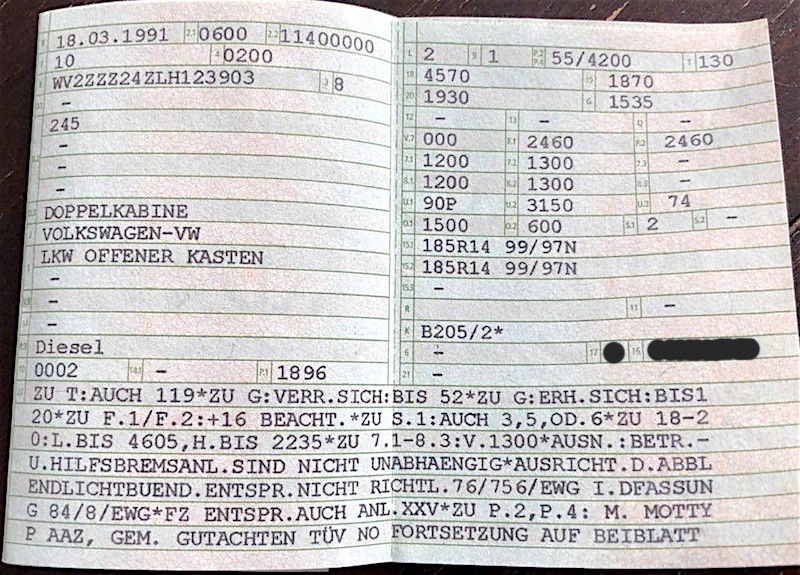 B 18.03.1991 2.1 0600 2.2 11400000
J 10 4 0200
E WV2ZZZ24ZLH123903 3 8
-
245
-
-
-
DOPPELKABINE
VOLKSWAGEN-VW
LKW OFFENER KASTEN
-
-
-
Diesel
0002 14.1 - P.1 1896
L 2 9 1 P.2 P.4 55/4200 T 130
18 4570 19 1870
20 1930 G 1535
12 - 13 - Q -
V.7 000 F.1 2460 F.2 2460
7.1 1200 7.2 1300 7.3 -
8.1 1200 8.2 1300 8.3 -
U.1 90P U.2 3150 U.3 74
O.1 1500 O.2 600 S.1 2 S.2 -
15.1 185R14 99/97N
15.2 185R14 99/97N
15.3 -
R 11 -
K B205/2*
6 - 17 16
21 -
ZU T:AUCH 119*ZU G:VERR.SICH:BIS 52*ZU G:ERH.SICH:BIS1
20*ZU F.1/F.2:+16 BEACHT.*ZU S.1:AUCH 3,5,OD.6*ZU 18-2
0:L.BIS 4605,H.BIS 2235*ZU 7.1-8.3:V.1300*AUSN.:BETR.-
U.HILFSBREMSANL.SIND NICHT UNABHAENGIG*AUSRICHT.D.ABBL
ENDLICHTBUEND.ENTSPR.NICHT RICHTL.76/756/EWG I.DFASSUN
G 84/8/EWG*FZ ENTSPR.AUCH ANL.XXV*ZU P.2,P.4: M. MOTTY
P AAZ, GEM. GUTACHTEN TÜV NO FORTSETZUNG AUF BEIBLATT